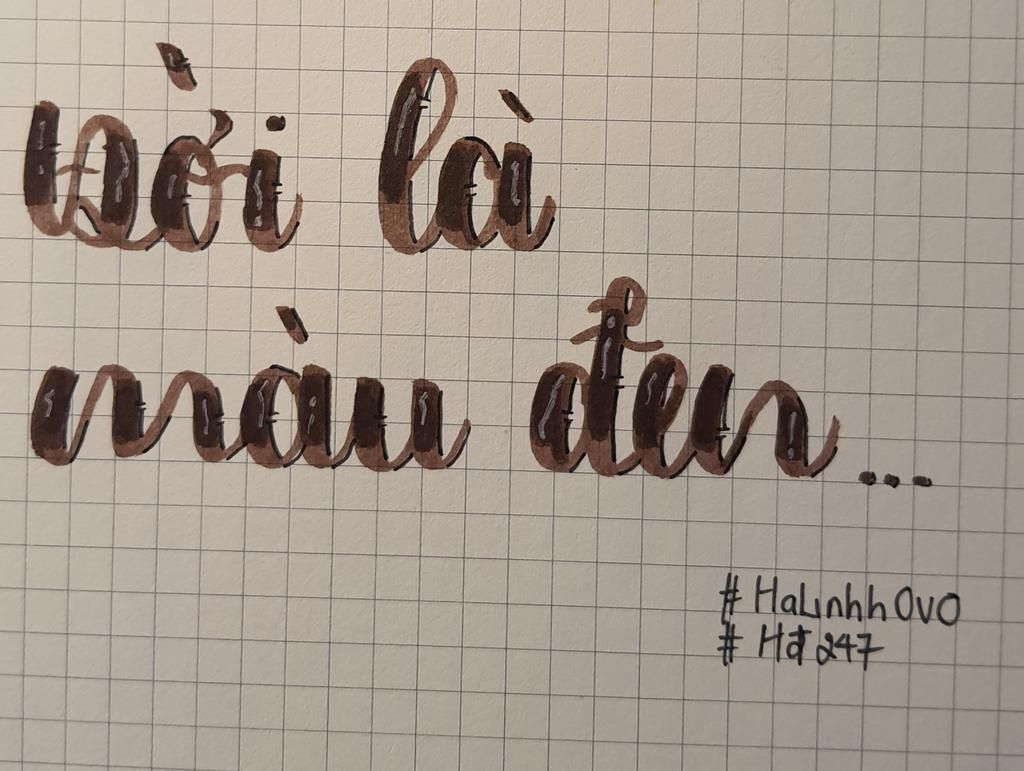 Đời là
màu đen...
# HaLinhhOvO
# Hđ247